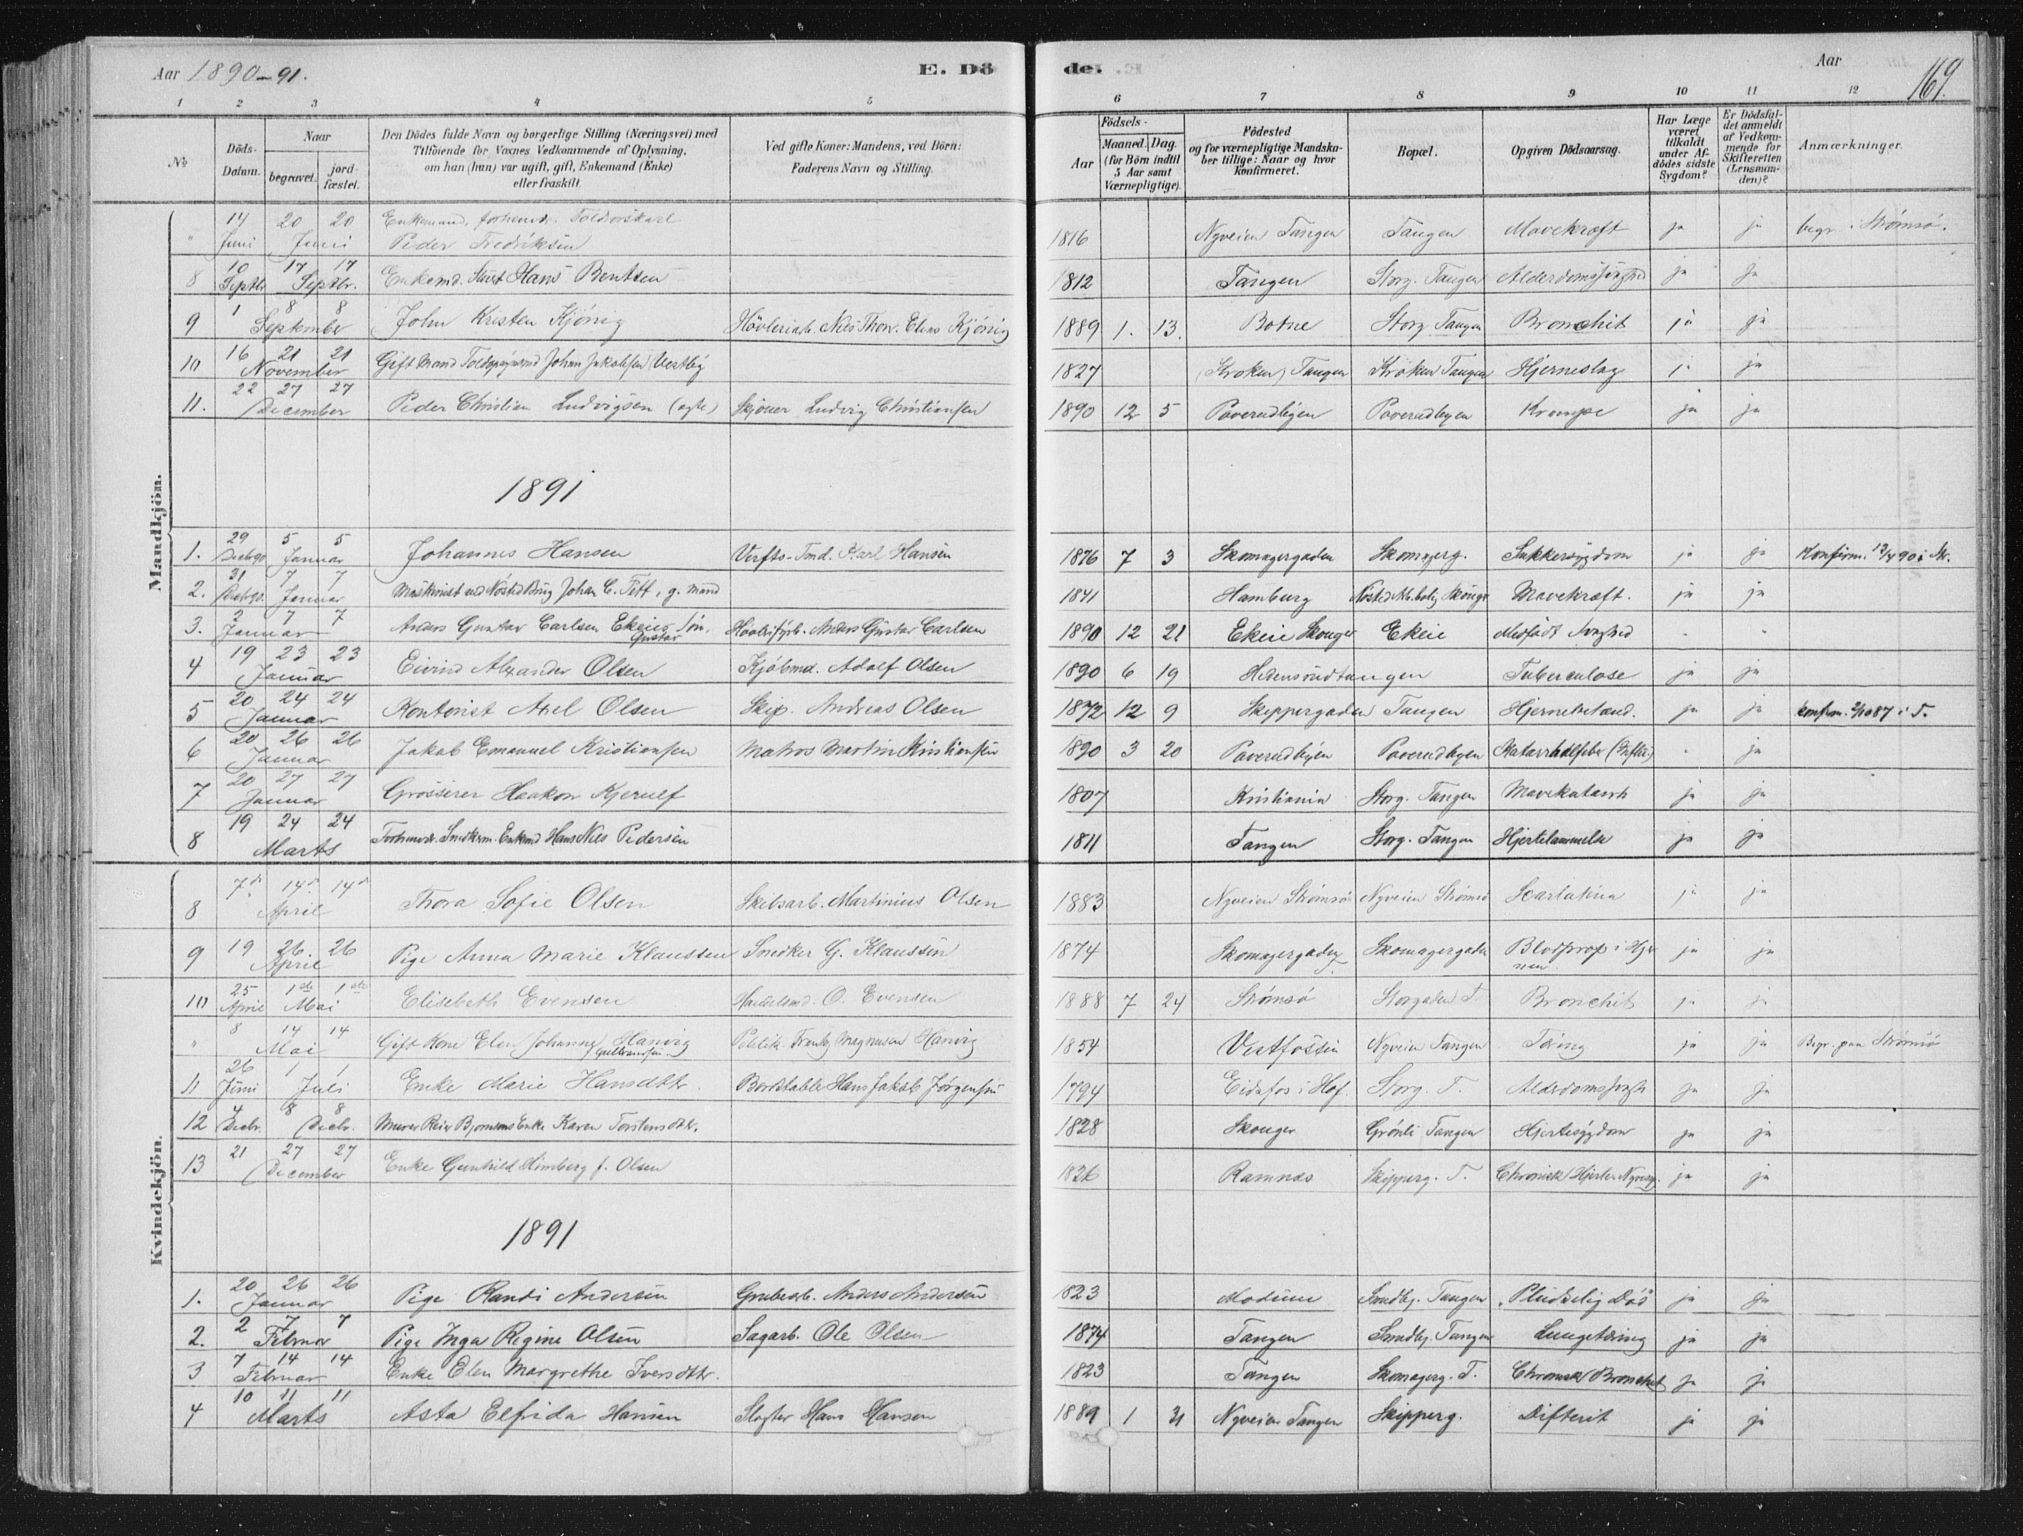 Aar 1890-91. E. Dö de. Aar 169.
1 2 3 4 5 6 7 8 9 10 11 12
No
Döds-Datum.
Naar begravet. jord-fæstet.
Den Dödes fulde Navn og borgerlige Stilling (Næringsvei) med Tilföiende for Voxnes Vedkommende af Oplysning, om han (hun) var ugift, gift, Enkemand (Enke) eller fraskilt.
Ved gifte Koner: Mandens, ved Börn: Faderens Navn og Stilling.
Födsels- Aar Maaned. Dag. (for Börn indtil 5 Aar samt Værnepligtige).
Födested og for værnepligtige Mandskaber tillige: Naar og hvor konfirmeret.
Bopæl.
Opgiven Dödsaarsag.
Har Læge været tilkaldt under Afdödes sidste Sygdom?
Er Dödsfaldet anmeldt af Vedkommende for Skifteretten (Lensmanden)?
Anmærkninger.
Mandkjön.
" 14 Juni 20 20 Juni Enkemand, forhenv. Toldorskarl Peder Fredriksen 1816 Nyveien Tangen Tangen Mavekræft ja ja begr. i Strömsö.
8 10 Septbr 17 17 Septbr. Enkemd. Hans Bentsen 1812 Tangen Storg. Tangen Alderdomssvaghed ja ja
9 1 8 8 September John Kristen Kjönig Hövleriarb. Nils Thorv. Elias Kjönig 1889 1. 13. Botne Storg. Tangen Bronchit ja ja
10 16 21 21 November Gift Mand Johan Jakobsen Vestby 1827 (Kroken) Tangen Kroken Tangen Hjerneslag ja ja
11. 22 27 27 December Peder Christian Ludvigsen (ægte) Skjouer Ludvig Christiansen 1890 12 5 Poverudbyen Poverudbyen Krampe ja ja
1891
1. 29 Decb 90 5 5 Januar Johannes Hansen Verfts-Tmd. Karl Hansen 1876 7 3 Skomagergaden Skomagerg. Sukkersygdom ja ja Konfirm. 12/4 90 i Str.
2. 31 Decb 90. 7 7 Januar Maskinist ved Nösted Brug Johan C. Tett, g. mand 1841 Hamburg Nösted Skouger Mavekræft. ja ja
3. 2 7 7 Januar Anders Gustav Carlsen Ekeies Sön, Gustav Anders Gustav Carlsen 1890 12 21 Ekeie Skouger Ekeie Medfödt Svaghed - "
4 19 23 23 Januar Eivind Alexander Olsen Kjöbmd. Adolf Olsen 1890 6 19 Hedensrudtangen Tuberculose ja ja
5 20 24 24 Januar Kontorist Axel Olsen Skip. Andreas Olsen 1872 12 9 Skippergaden Tangen Hjernebetænd. ja ja konfirm. 2/10 87 i T.
6 20 26 26 Januar Jakob Emanuel Kristiansen Matros Martin Kristiansen 1890 3 20 Poverudbyen Poverudbyen Katarrhalfeber (Difteri) - ja
7 20 27 27 Januar Grosserer Haakon Kjerulf 1807 Kristiania Storg. Tangen Mavekatarrh ja ja
8 19 24 24 Marts Forhenv. Snedkerm. Enkmd Hans Nils Pedersen 1811 Tangen Storg. Tangen Hjertelammelse ja ja
Kvindekjön.
8 7de 14de 14de April Thora Sofie Olsen Skibsarb. Martinius Olsen 1883 Nyveien Strömsö Nyveien Strömsö Scarlatina ja ja
9 19 26 26 April Pige Anna Marie Klaussen Snedker G. Klaussen 1874 Skomagergaden Skomagergaden Blodprop i Hjernen ja ja
10 25 April 1ste 1ste Mai Elisabeth Evensen Handelsmd. O. Evensen 1888 7 24 Strömsö Storgaden T. Bronchit ja ja
" 8 14 14 Mai Gift Kone Elen Johanne Hanvig f. Gulbransen Politik. Frantz Magnusen Hanvig 1854 Vestfossen Nyveien Tangen Tæring ja ja Begr. paa Strömsö
11 26 Juni 1 1 Juli Enke Marie Hansdttr. Bordstabler Hans Jakob Jörgensen 1794 Eidsfos i Hof. Storg. T. Alderdomssvagh. ja ja
12 4 Decbr. 8 8 Decbr. Murer Reier Bjornsens Enke Karen Torstensdtr. 1828 Skouger Grönli Tangen Hjertesygdom ja ja
13 21 27 27 December Enke Gunhild Himberg f. Olsen 1826 Ramnæs Skipperg. T. Chronisk Hjerte ja ja
1891
1. 20 26 26 Januar Pige Randi Andersen Grubearb. Anders Andersen 1823 Modum Smedbj. Tangen "Pludselig Död" ja ja
2. 2 7 7 Februar Pige Inga Regine Olsen Sagarb. Ole Olsen 1874 Tangen Smedbj. Tangen Lungetæring ja ja
3 7 14 14 Februar Enke Elen Margrethe Iversdtr. 1823 Tangen Skomagerg. T. Chronisk Bronchit ja ja
4 10 11 11 Marts Asta Elfrida Hansen Slagter Hans Hansen 1889 1 31 Nyveien Tangen Skipperg. Difterit ja ja